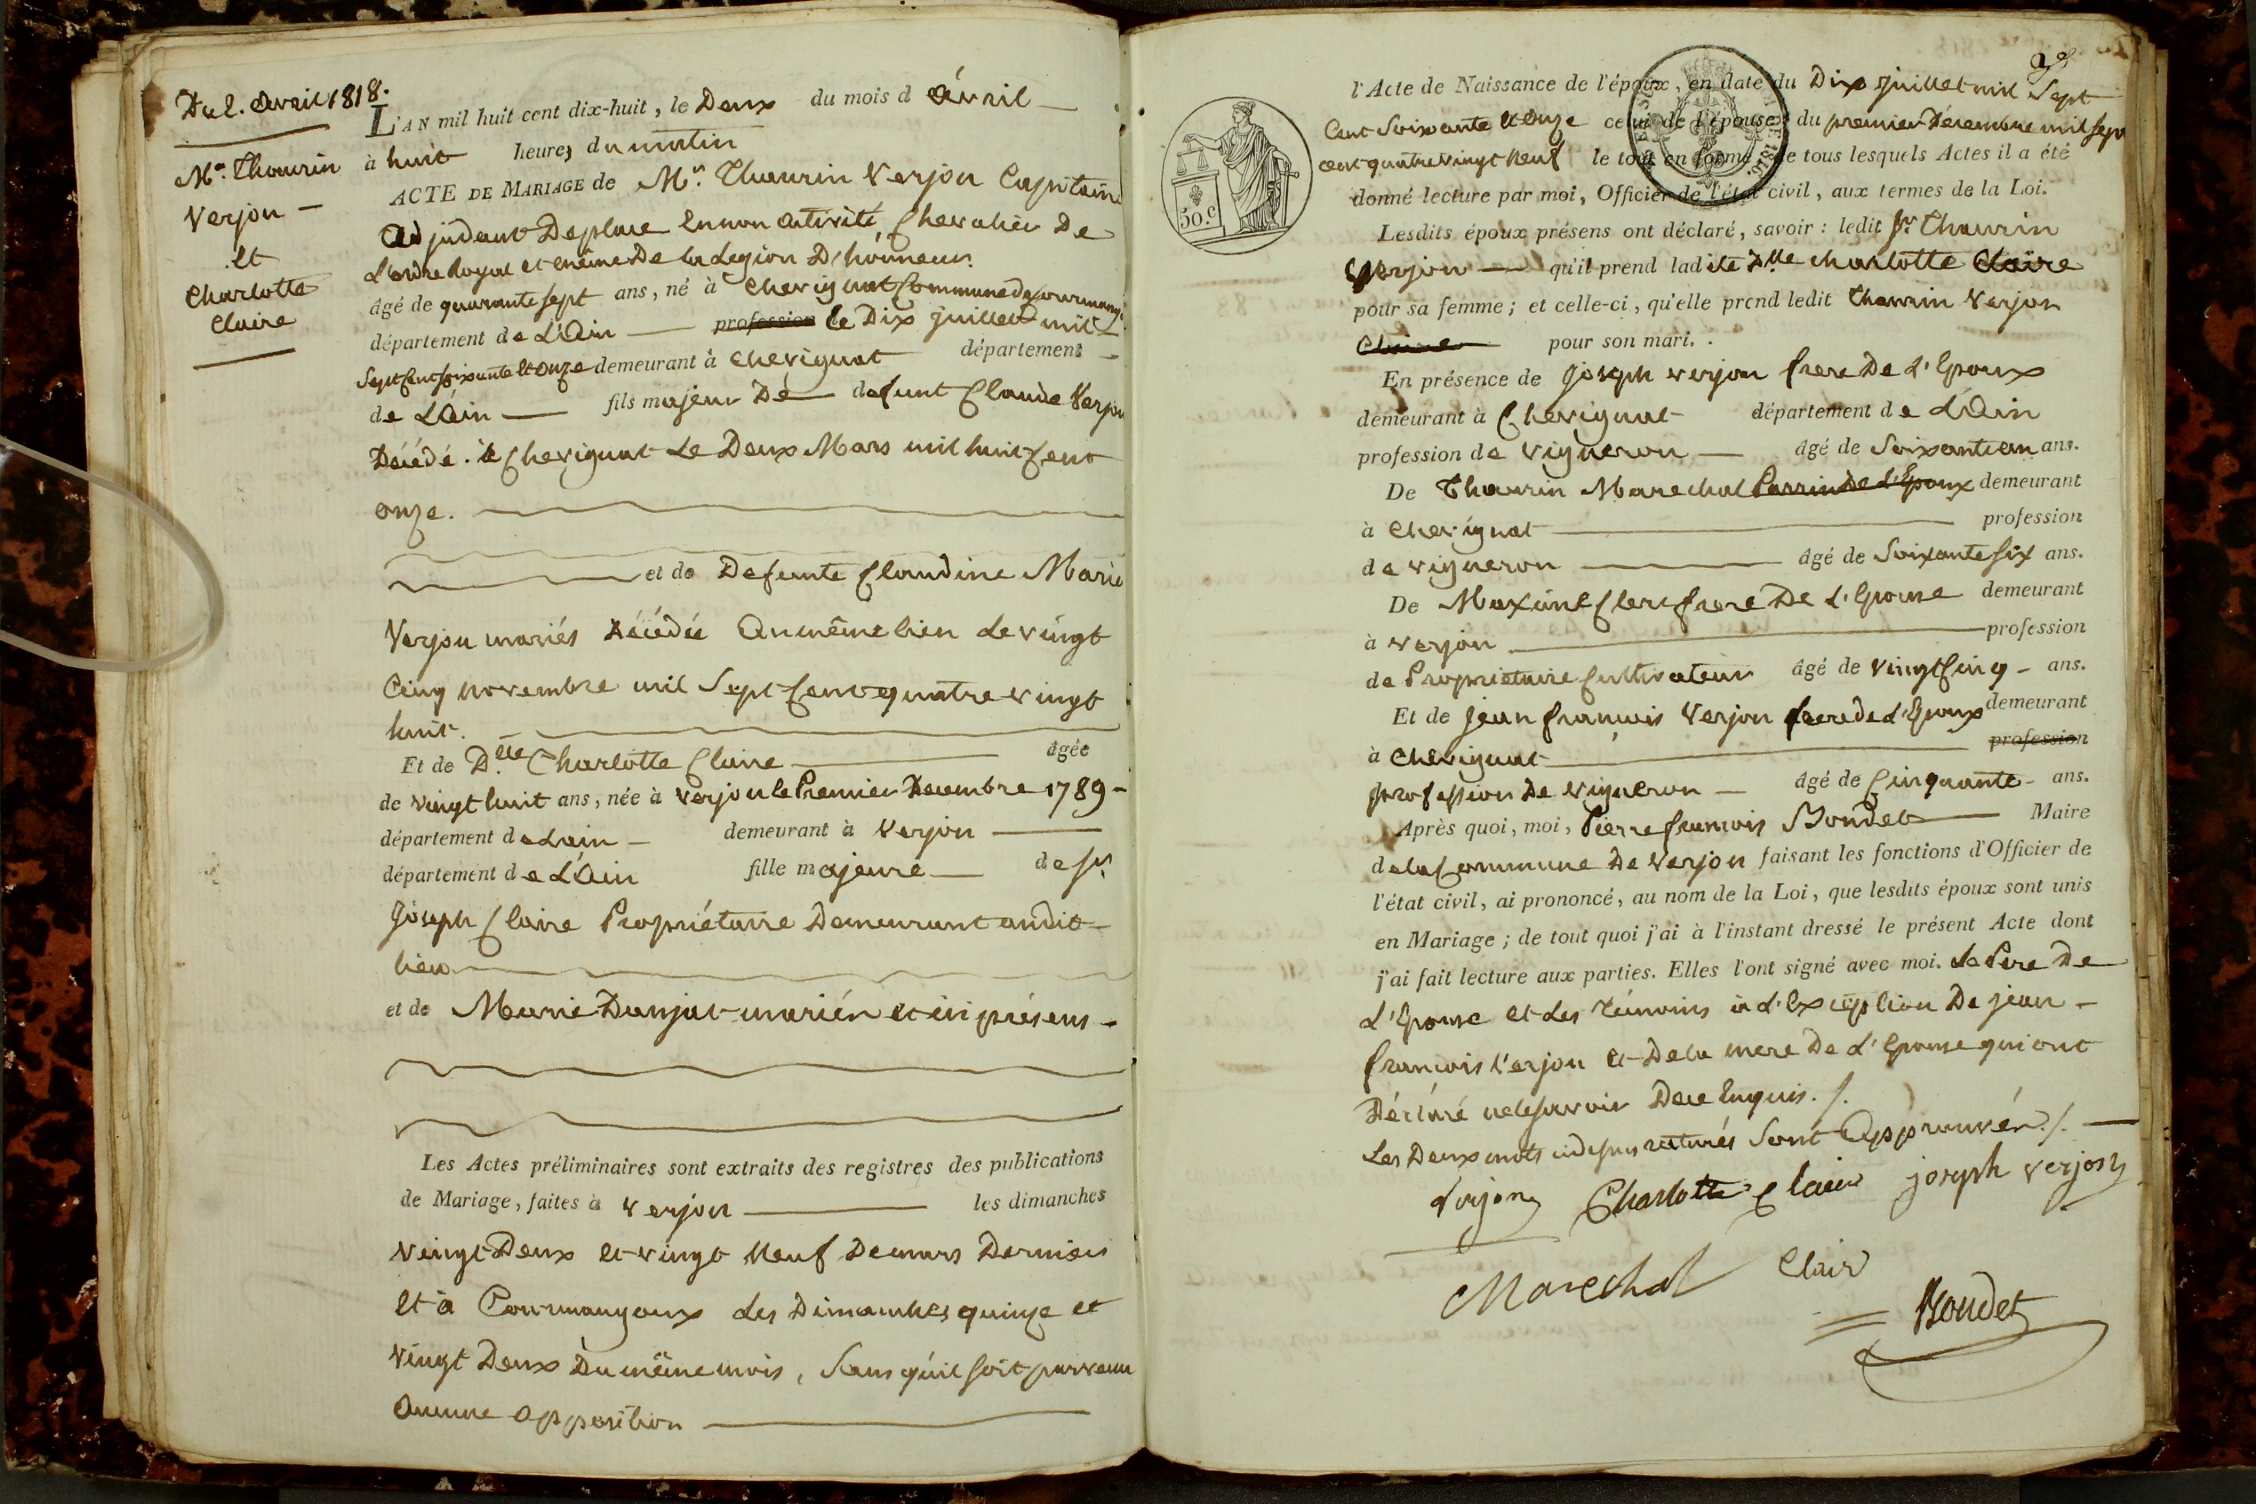 Du 2. Avril 1818.
Mr. Thaurin
Verjon
et
Charlotte
Claire
L'AN mil huit cent dix-huit, le Deux du mois d Avril
à huit heures du matin
ACTE DE MARIAGE de Mr. Thaurin Verjon Capitaine
adjudant De place en non activité, Chevalier De
L'ordre Royal et même De la Legion D'honneur.
âgé de quarante sept ans, né à Chevignat Commune de Courmangoux
département de L'Ain profession le Dix juillet mil
Sept Cent soixante et onze demeurant à Chevignat département
de L'Ain fils majeur De defunt Claude Verjon
Décédé à Chevignat Le Deux Mars mil huit Cent
onze.
et de Defunte Claudine Marie
Verjon mariés Décédée au même lieu le vingt
Cinq novembre mil Sept Cent quatre vingt
huit.
Et de Dlle Charlotte Claire âgée
de vingt huit ans, née à Verjon le Premier Decembre 1789
département de Lain demeurant à Verjon
département de L'Ain fille majeure de Sr.
Joseph Claire Propriétaire Demeurant audit
lieu
et de Marie Danjat mariés et ici présens
Les Actes préliminaires sont extraits des registres des publications
de Mariage, faites à Verjon les dimanches
vingt Deux et vingt Neuf De mars Dernier
et à Courmangoux Les Dimanches quinze et
vingt Deux Du même mois, Sans qu'il soit parvenu
Aucune opposition
l'Acte de Naissance de l'époux, en date du Dix juillet mil Sept
Cent Soixante et onze celui de l'épouse du premier Décembre mil sept
cent quatre vingt neuf le tout en forme de tous lesquels Actes il a été
donné lecture par moi, Officier de l'état civil, aux termes de la Loi.
50.c
Lesdits époux présens ont déclaré, savoir : ledit Sr. Thaurin
Verjon qu'il prend ladite Dlle Charlotte Claire
pour sa femme ; et celle-ci, qu'elle prend ledit Thaurin Verjon
Claire pour son mari.
En présence de Joseph Verjon frere De L'Epoux
demeurant à Chevignat département de L'Ain
profession de vigneron âgé de Soixante un ans.
De Thaurin Marechal Parrin De L'Epoux demeurant
à Chevignat profession
de vigneron âgé de Soixante Six ans.
De Maxime Clere frere De L'Epouse demeurant
à Verjon profession
de Propriétaire Cultivateur âgé de vingt Cinq ans.
Et de Jean françois Verjon frere de L'Epoux demeurant
à Chevignat profession
profession De vigneron âgé de Cinquante ans.
Après quoi, moi, Pierre françois Boudet Maire
de la Commune De Verjon faisant les fonctions d'Officier de
l'état civil, ai prononcé, au nom de la Loi, que lesdits époux sont unis
en Mariage ; de tout quoi j'ai à l'instant dressé le présent Acte dont
j'ai fait lecture aux parties. Elles l'ont signé avec moi. Le Pere De
L'Epouse et Les Témoins à L'Exception De jean
françois Verjon et De la mere De L'Epouse qui ont
Déclaré ne le Savoir De ce Enquis./.
Les Deux mots ci dessus raturés Sont Approuvés./.
Verjon Charlotte Claire joseph Verjon
Marechal Clair Boudet